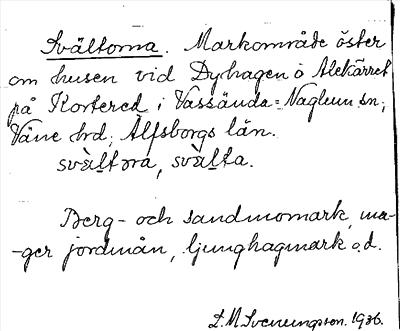 Svältorna. Markområde öster
om husen vid Dyrhagen o Alekärret
på Kortered i Vassända=Naglum sn,
Väne hrd, Älfsborgs län.
svàltɷra, svàlta.
Berg- och sandmomark, ma-
-ger jordmån, ljunghagmark o.d.
D. M. Svenungsson. 1936.